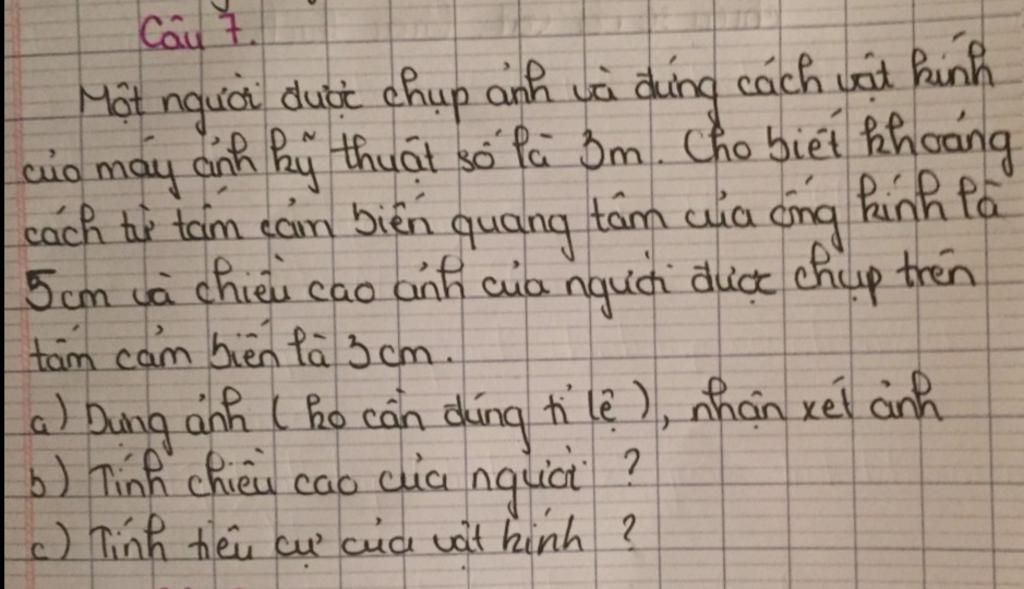 Câu 7.
Một người được chụp ảnh và đứng cách vật kính
của máy ảnh kỹ thuật số là 3m. Cho biết khoảng
cách từ tấm cảm biến quang tâm của ống kính là
5cm và chiều cao ảnh của người được chụp trên
tấm cảm biến là 3cm.
a) Dựng ảnh (ko cần đúng tỉ lệ), nhận xét ảnh
b) Tính chiều cao của người ?
c) Tính tiêu cự của vật kính ?